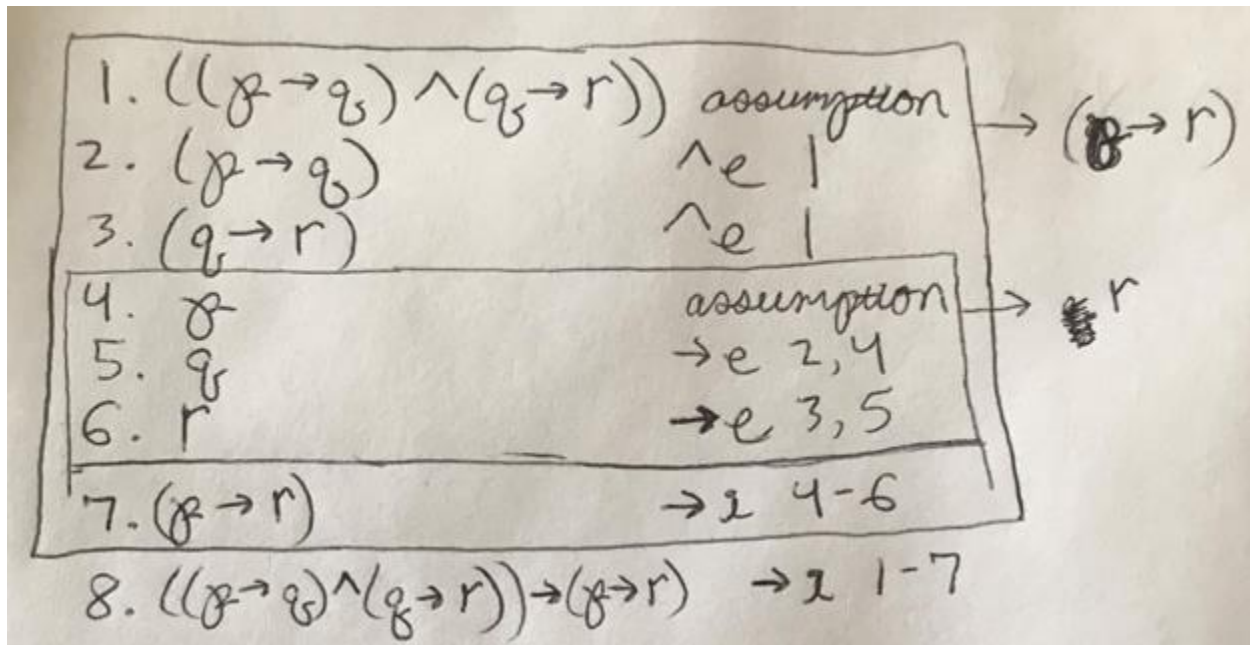 1. ((p→q) ∧ (q→r)) assumption → (p→r)
2. (p→q) ∧e 1
3. (q→r) ∧e 1
4. p assumption → r
5. q →e 2,4
6. r →e 3,5
7. (p→r) →i 4-6
8. ((p→q)∧(q→r))→(p→r) →i 1-7